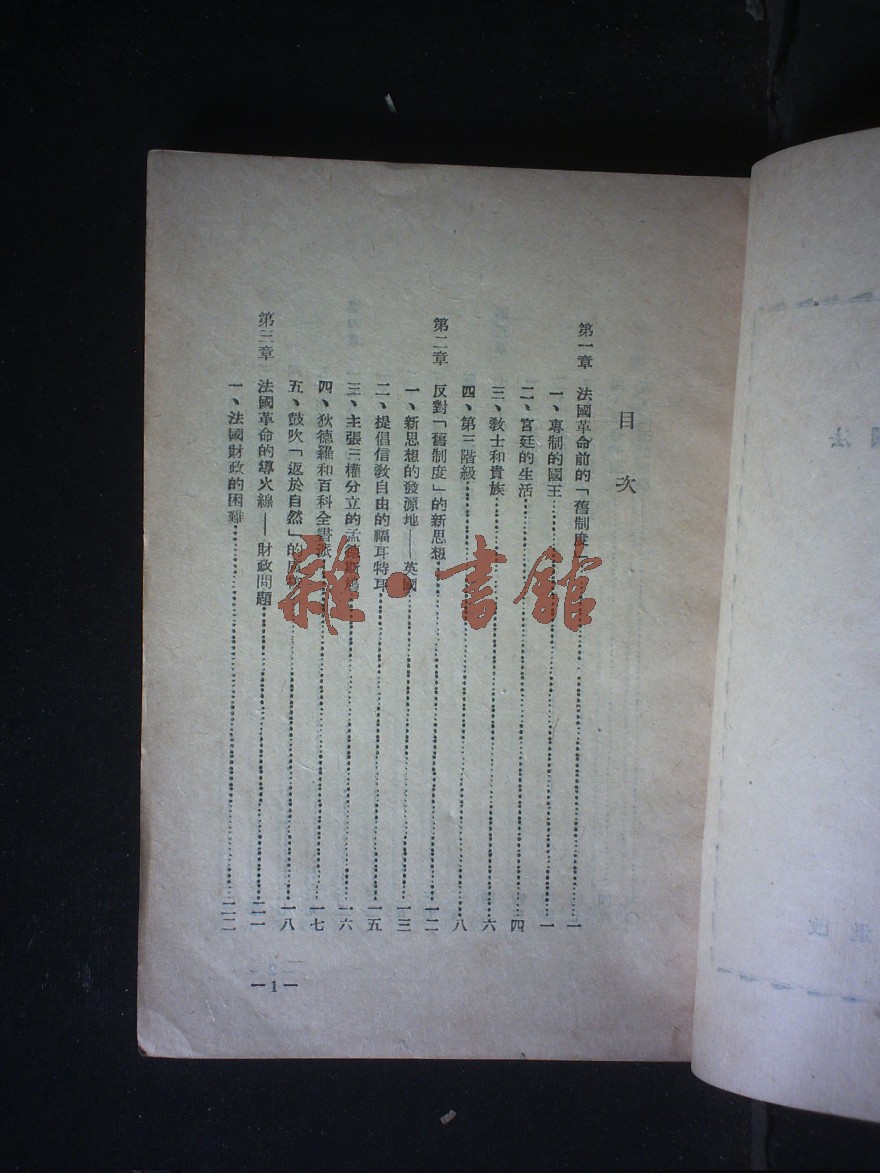 目次
第一章 法國革命前的「舊制度」……一
一、專制的國王……一
二、宮廷的生活……四
三、教士和貴族……六
四、第三階級……八
第二章 反對「舊制度」的新思想……一二
一、新思想的發源地——英國……一三
二、提倡信教自由的福耳特耳……一五
三、主張三權分立的孟德斯鳩……一六
四、狄德羅和百科全書派……一七
五、鼓吹「返於自然」的……一八
第三章 法國革命的導火線——財政問題……二一
一、法國財政的困難……二二
—1—
雜·書館